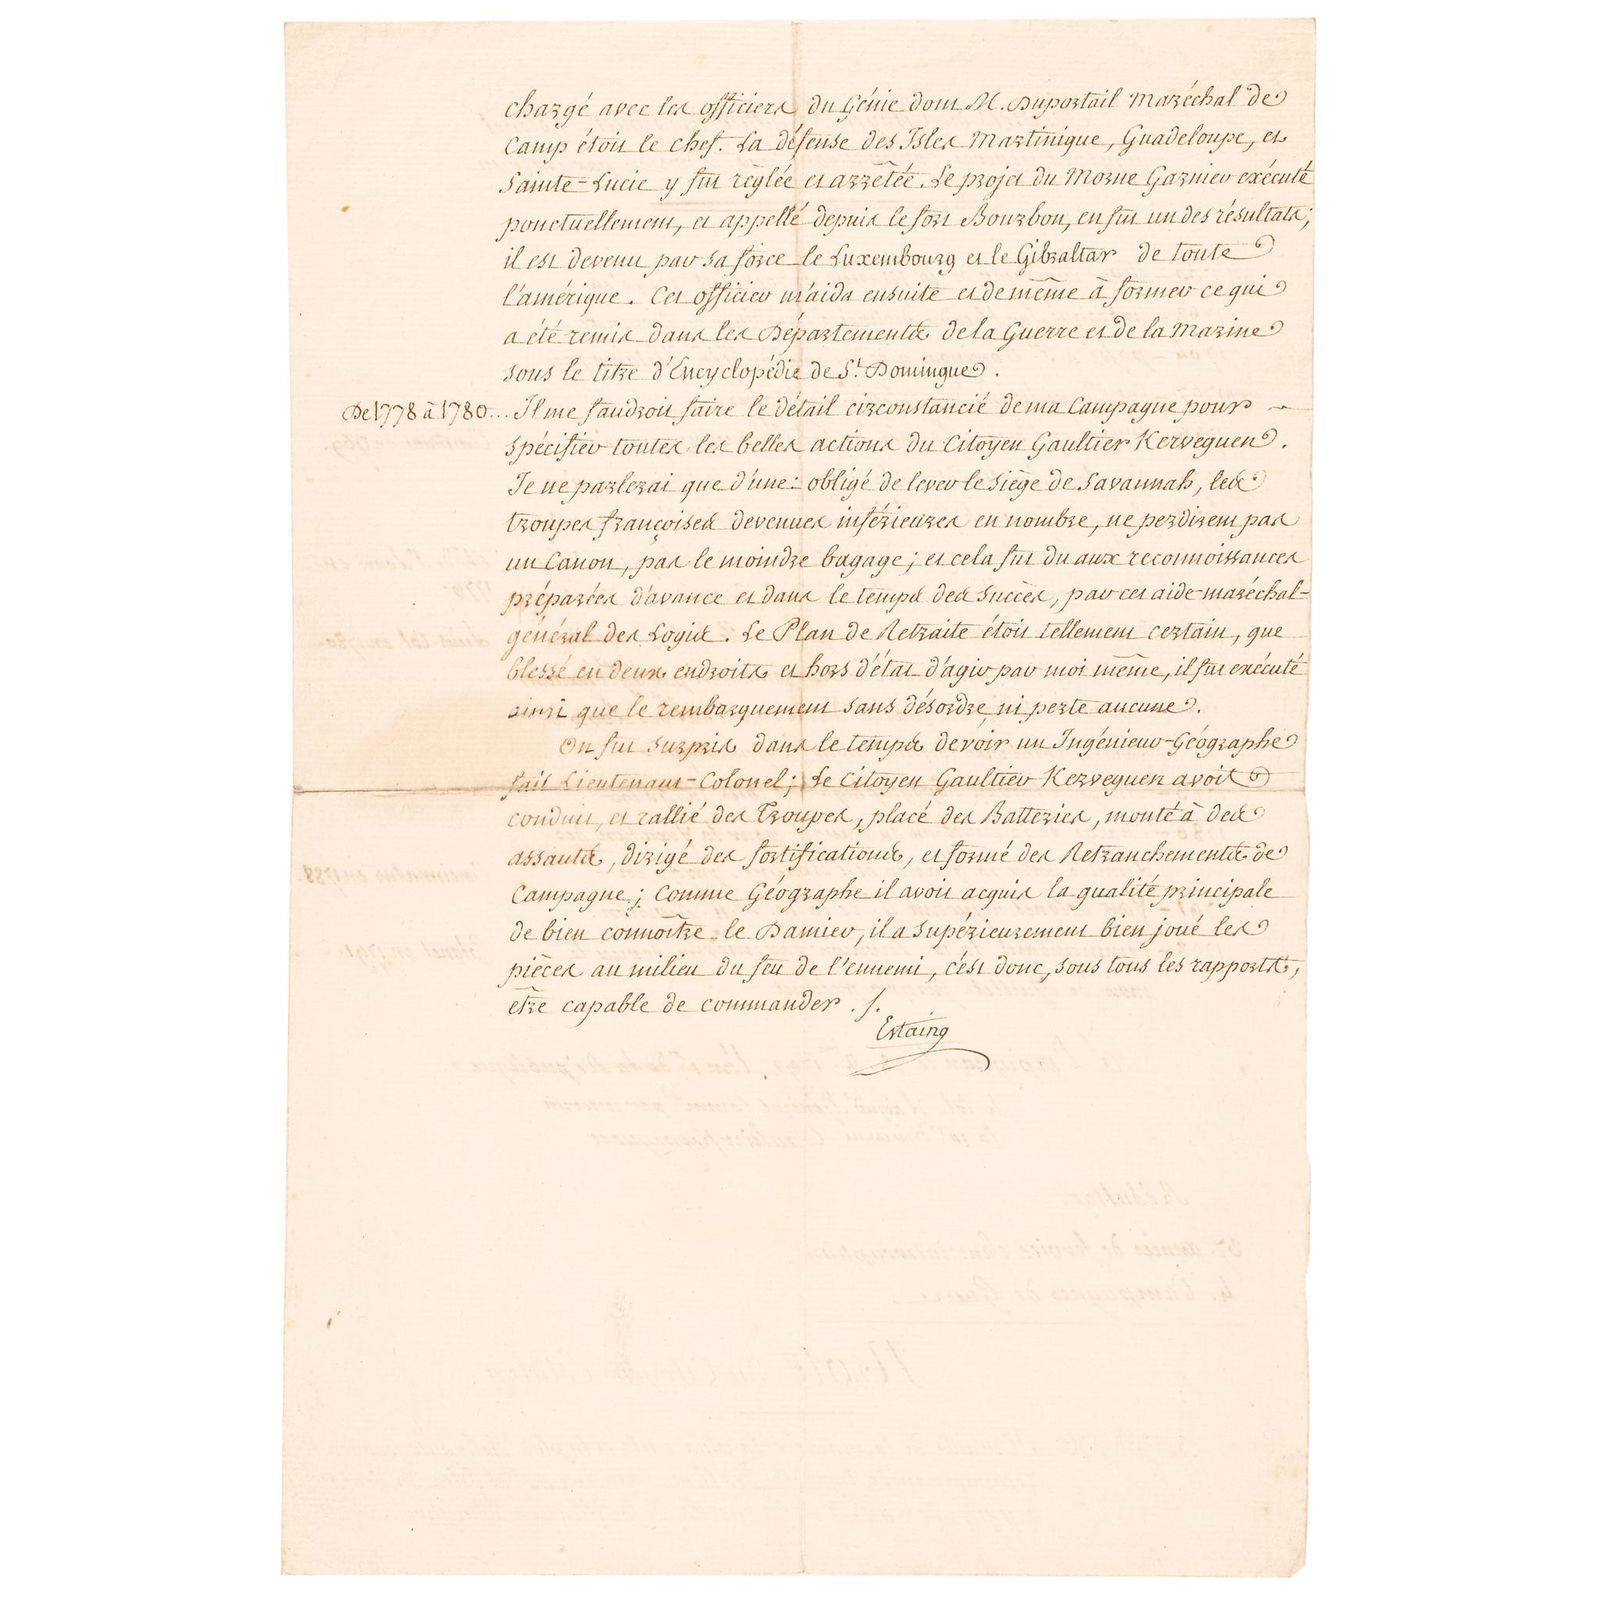 chargé avec les officiers du Génie dont M. Duportail Maréchal de
Camp étoit le chef. La défense des Isles Martinique, Guadeloupe, et
Sainte-Lucie y fut règlée et arrêtée. Le projet du Morne Garnier exécuté
ponctuellement, et appellé depuis le fort Bourbon, en fut un des résultats;
il est devenu par sa force le Luxembourg et le Gibraltar de toute
l'amérique. Cet officier m'aida ensuite et de même à former ce qui
a été remis dans les Départements de la Guerre et de la Marine
sous le titre d'Encyclopédie de St. Domingue.
De 1778 à 1780... Il me faudroit faire le détail circonstancié de ma Campagne pour
spécifier toutes les belles actions du Citoyen Gaultier Kerveguen.
Je ne parlerai que d'une: obligé de lever le siège de Savannah, les
troupes françoises devenues inférieures en nombre, ne perdirent pas
un Canon, pas le moindre bagage; et cela fut du aux reconnoissances
préparées d'avance et dans le temps des succès, par cet aide-maréchal-
général des Logis. Le Plan de Retraite étoit tellement certain, que
blessé en deux endroits et hors d'état d'agir par moi même, il fut exécuté
ainsi que le rembarquement sans désordre, ni perte aucune.
On fut surpris dans le temps de voir un Ingénieur-Géographe
fait Lieutenant-Colonel; Le Citoyen Gaultier Kerveguen avoit
conduit, et rallié des Troupes, placé des Batteries, monté à des
assauts, dirigé des fortifications, et formé des Retranchements de
Campagne; comme Géographe il avoit acquis la qualité principale
de bien connoître le Damier, il a supérieurement bien joué les
pièces au milieu du feu de l'ennemi, c'est donc, sous tous les rapports,
etre capable de commander.
Estaing